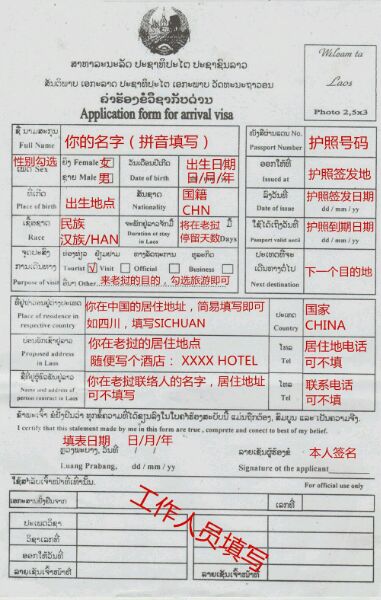 ສາທາລະນະລັດ ປະຊາທິປະໄຕ ປະຊາຊົນລາວ
ສັນຕິພາບ ເອກະລາດ ປະຊາທິປະໄຕ ເອກະພາບ ວັດທະນະຖາວອນ
ຄຳຮ້ອງຂໍວີຊາກັບດ່ານ
Application form for arrival visa
Welcom to
Laos
Photo 2,5x3
ຊື່ ນາມສະກຸນ
Full Name
你的名字（拼音填写）
ໜັງສືຜ່ານແດນ No.
Passport Number
护照号码
性别勾选
ເພດ Sex
ຍິງ Female 女
ຊາຍ Male 男
ວັນເດືອນປີເກີດ
Date of birth
出生日期
日/月/年
ອອກໃຫ້ທີ່
Issued at
护照签发地
ທີ່ເກີດ
Place of birth
出生地点
ສັນຊາດ
Nationality
国籍
CHN
ລົງວັນທີ
Date of issue
护照签发日期
dd / mm / yy
ເຊື້ອຊາດ
Race
民族
汉族/HAN
ຈະພັກຢູ່ລາວຈັກມື້
Duration of stay
in Laos
将在老挝
停留天数
ມື້
Days
ໃຊ້ໄດ້ເຖິງວັນທີ
Passport valid until
护照到期日期
dd / mm / yy
ຈຸດປະສົງ
ການເດີນທາງ
Purpose of visit
ທ່ອງທ່ຽວ ຢ້ຽມຢາມ ທາງລັດຖະການ ທຸລະກິດ
Tourist √ Visit Official Business
来老挝的目的，勾选旅游即可
ປະເທດທີ່ຈະ
ເດີນທາງຕໍ່ໄປ
Next destination
下一个目的地
ທີ່ຢູ່ປະຈຸບັນຢູ່ຕ່າງປະເທດ
Place of residence in
respective country
你在中国的居住地址，简易填写即可
如四川，填写SICHUAN
ປະເທດ
Country
国家
CHINA
ບ່ອນພັກເຊົາຢູ່ລາວ
Proposed address
in Laos
你在老挝的居住地点
随便写个酒店： XXXX HOTEL
ໂທ
Tel
居住地电话
可不填
ຊື່ ທີ່ຢູ່ຜູ້ຮັບຮອງຢູ່ລາວ
Name and address of
person contract in Laos
你在老挝联络人的名字，居住地址
可不填写
ໂທ
Tel
联系电话
可不填
ຂ້າພະເຈົ້າ ຂໍຢັ້ງຢືນວ່າ ທຸກຂໍ້ຄວາມທີ່ໄດ້ຂຽນລົງໃນໃບຄຳຮ້ອງສະບັບນີ້ ແມ່ນຖືກຕ້ອງ, ສົມບູນ ແລະເປັນຄວາມຈິງ.
I certify that this statement made by me in this form are true , complete and corect to best of my belief.
填表日期 日/月/年
ຫຼວງພະບາງ, ວັນທີ
Luang Prabang, dd / mm / yy
ລາຍເຊັນຜູ້ຮ້ອງຂໍ 本人签名
Signature ot the applicant
ໃຊ້ສຳລັບເຈົ້າໜ້າທີ່ເທົ່ານັ້ນ.
For official use only
工作人员填写
ເອກະສານຢັ້ງຢືນຈາກ
ເລກທີ
ປະເພດວີຊາ
ວີຊາເລກທີ
ອອກໃຫ້ວັນທີ
ລາຍເຊັນເຈົ້າໜ້າທີ່
ລາຍເຊັນເຈົ້າໜ້າທີ່